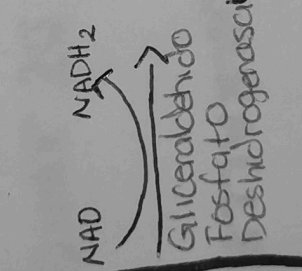 NAD
NADH2
Gliceraldehido
Fosfato
Deshidrogenasa